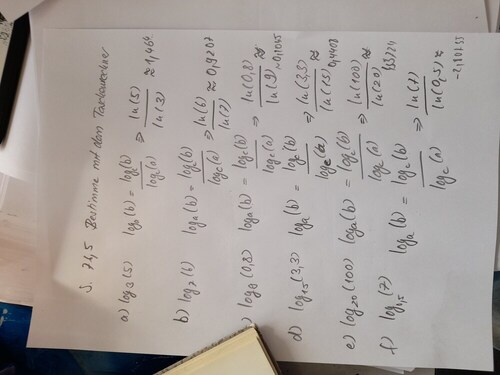 S. 74,5 Bestimme mit dem Taschenrechner
a) log₃(5) logₐ(b) = log(b)/log(a) ⇒ ln(5)/ln(3) ≈ 1,464
b) log₇(6) logₐ(b) = log(b)/log꜀(a) ⇒ ln(6)/ln(7) ≈ 0,9207
) (0,8) logₐ(b) = log꜀(b)/log꜀(a) ⇒ ln(0,8)/ln(9) ≈ -0,1015
d) log₁₅(3,3) logₐ(b) = log꜀(b)/log꜀(a) ⇒ ln(3,3)/ln(15) ≈ 0,4408
e) log₂₀(100) logₐ(b) = log꜀(b)/log꜀(a) ⇒ ln(100)/ln(20) ≈
f) log₀,₅(7) logₐ(b) = log꜀(b)/log꜀(a) ⇒ ln(7)/ln(0,5) ≈